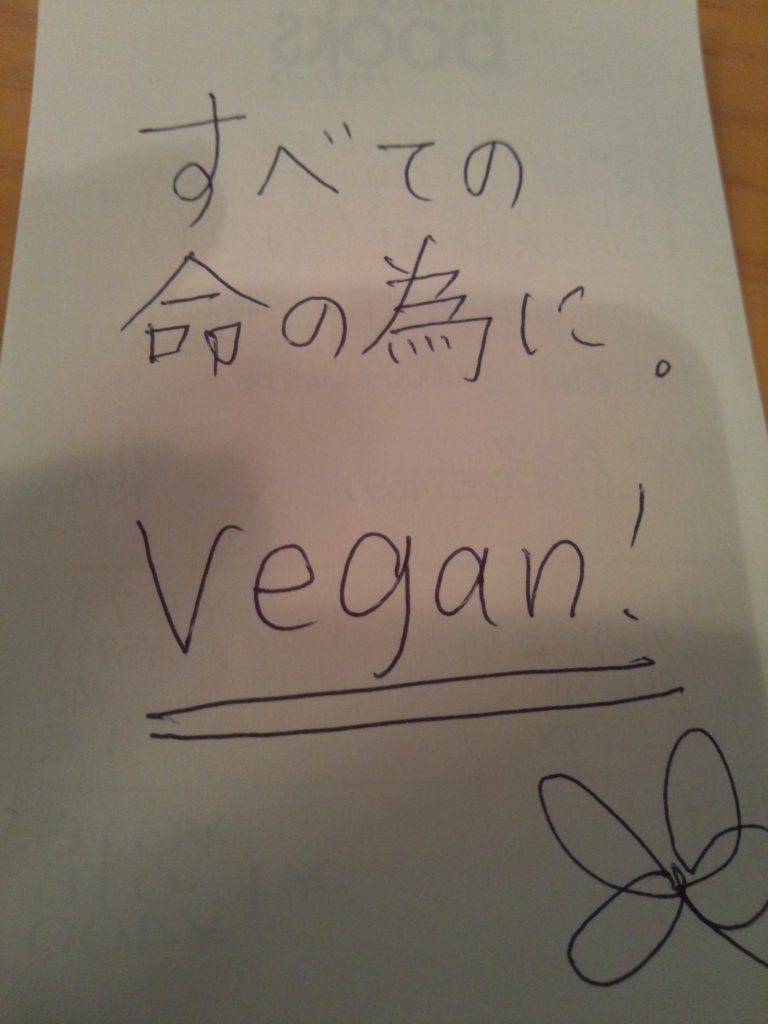 すべての
命の為に。
Vegan!